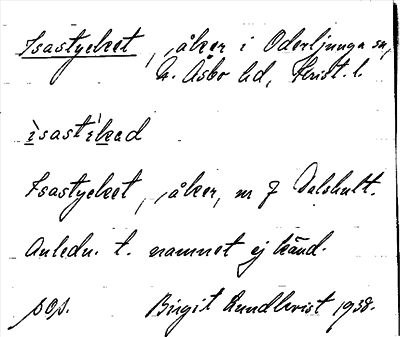 Isastycket, åker i Oderljunga sn,
N. Åsbo hd, Krist. l.
ìsastìkəd
Isastycket, åker, nr 7 Dalshult.
Anledn. t. namnet ej känd.
sos. Birgit Rundkvist 1938.